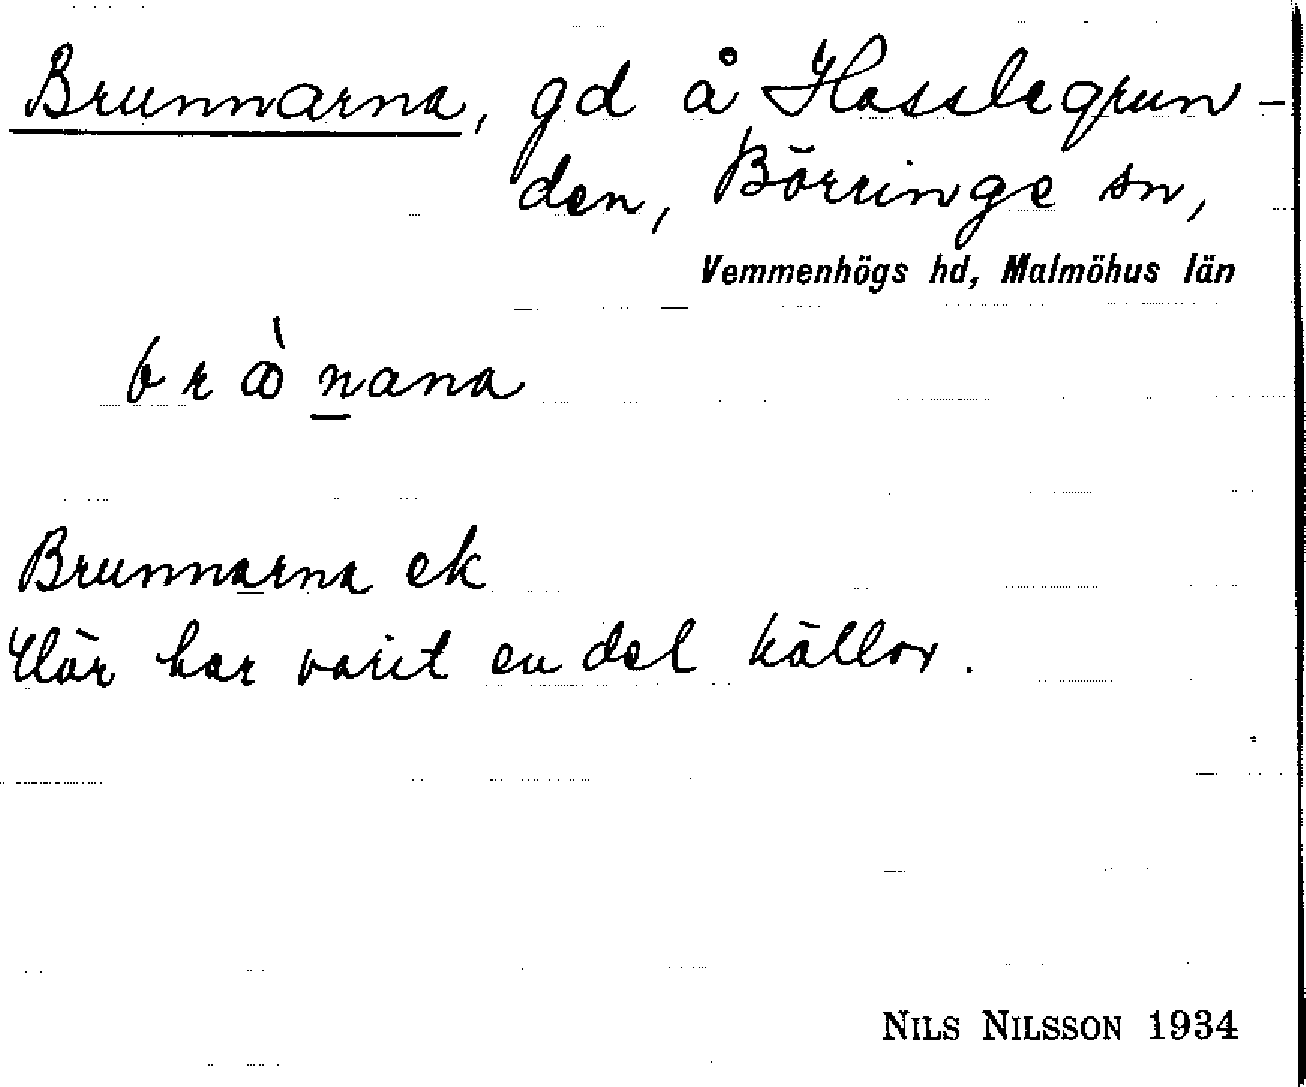 Brunnarna, gd å Hasslegrun-
den, Börringe sn,
Vemmenhögs hd, Malmöhus län
Brunnarna ek
Här har varit en del källor.
NILS NILSSON 1934